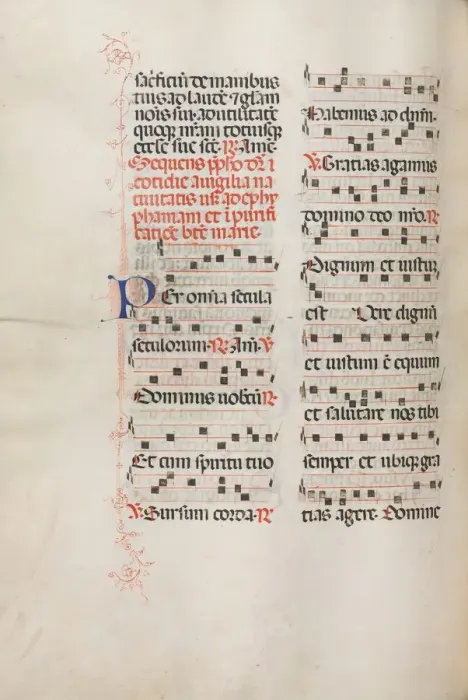 sacrificiũ de manibus
tuis ad laudẽ ⁊ glãm
nois sui. ad utilitatẽ
quoqȝ nram totiusqȝ
eccle sue scẽ. R. Amẽ
Sequens ppho dr i
cotidie a uigilia na
tiuitatis usq ad ephy
phaniam et i purifi
catiõe bte marie.
Per omnia secula
seculorum. R. Am. V
Dominus uobcũ R.
Et cum spiritu tuo
V. Sursum corda. R
Habemus ad dnm.
V. Gratias agamus
domino deo nro. R.
Dignum et iustũ
est Vere dignũ
et iustum ẽ equum
et salutare nos tibi
semper et ubiqȝ gra
tias agere. Domine